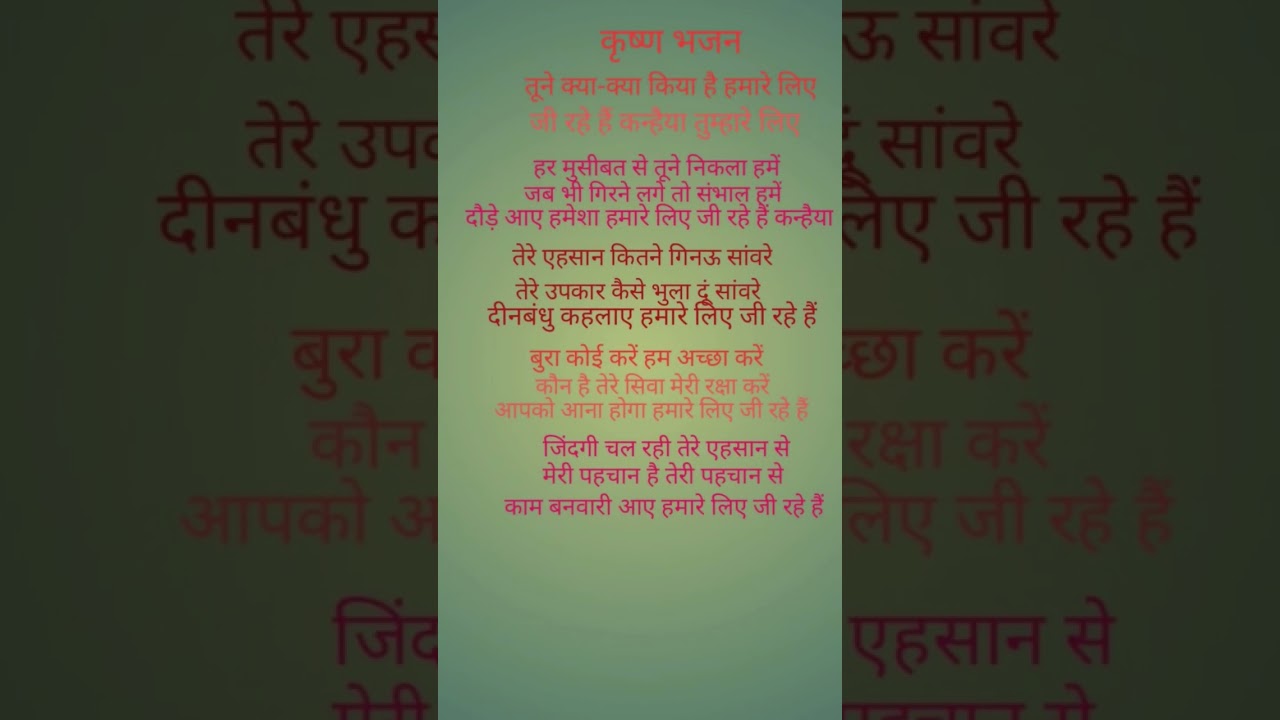 कृष्ण भजन
तूने क्या-क्या किया है हमारे लिए
जी रहे हैं कन्हैया तुम्हारे लिए
हर मुसीबत से तूने निकला हमें
जब भी गिरने लगे तो संभाल हमें
दौड़े आए हमेशा हमारे लिए जी रहे हैं कन्हैया
तेरे एहसान कितने गिनऊ सांवरे
तेरे उपकार कैसे भुला दूं सांवरे
दीनबंधु कहलाए हमारे लिए जी रहे हैं
बुरा कोई करें हम अच्छा करें
कौन है तेरे सिवा मेरी रक्षा करें
आपको आना होगा हमारे लिए जी रहे हैं
जिंदगी चल रही तेरे एहसान से
मेरी पहचान है तेरी पहचान से
काम बनवारी आए हमारे लिए जी रहे हैं